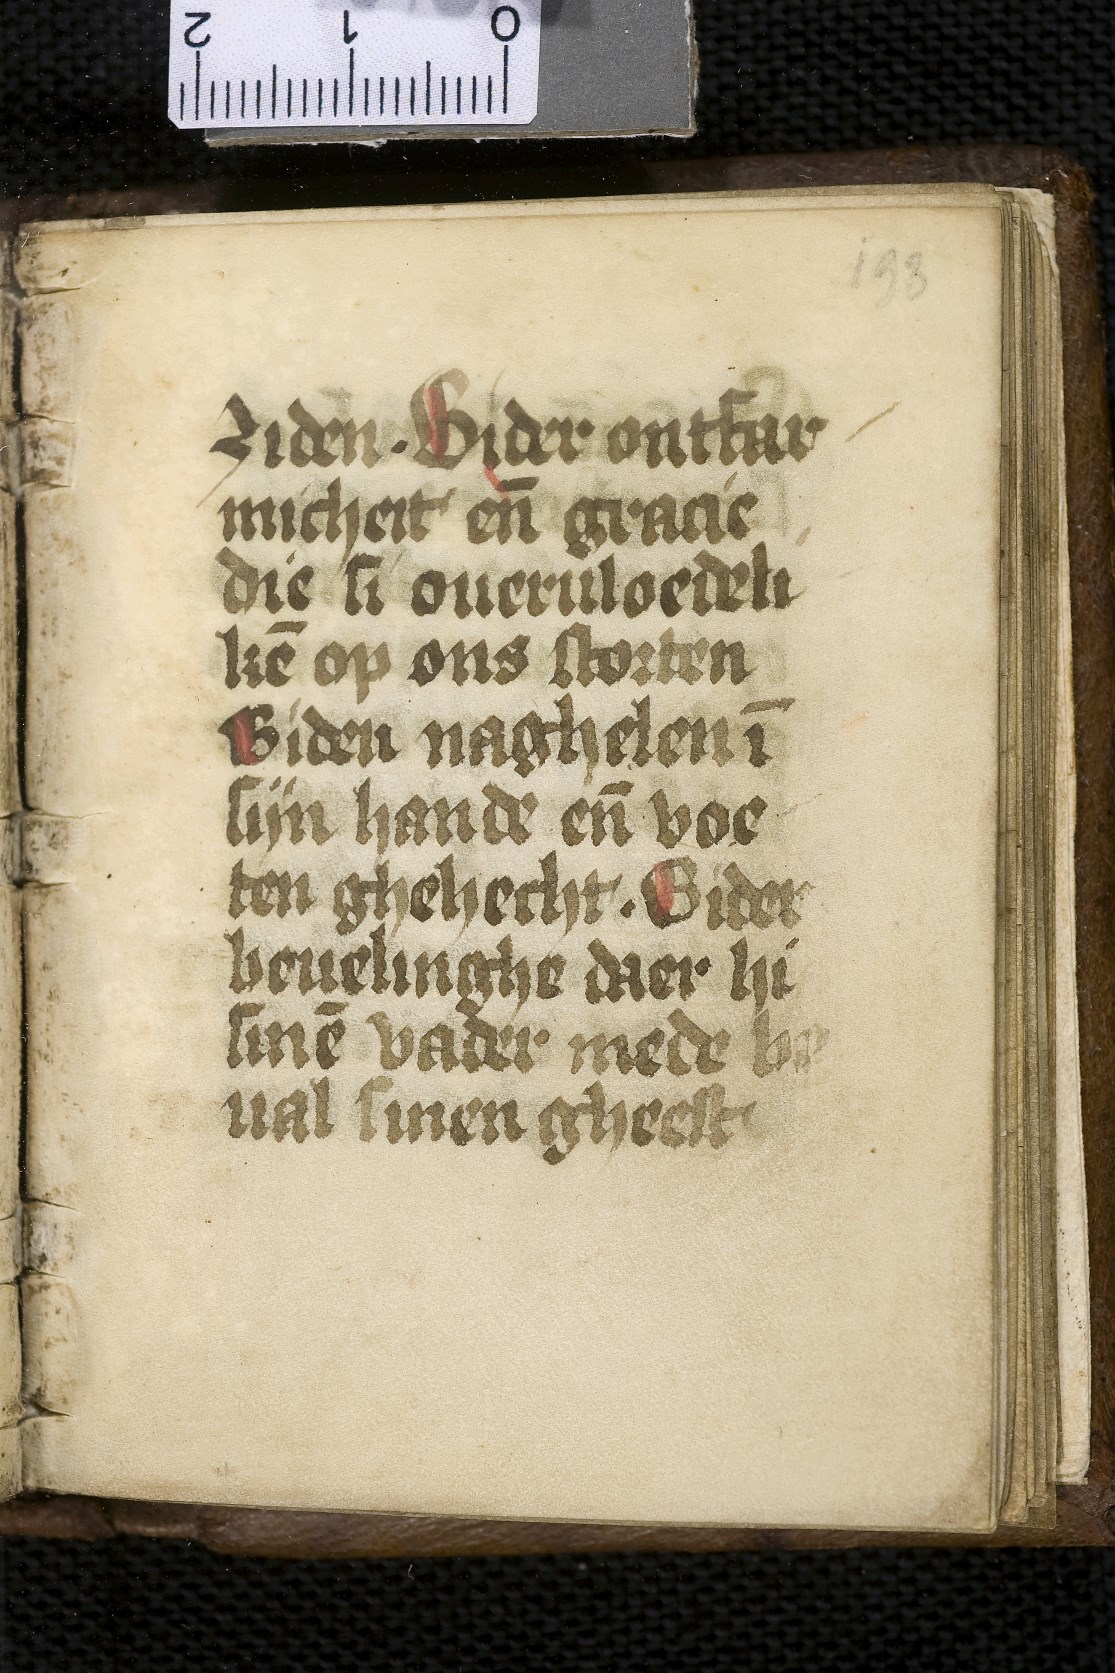 2 1 0
198
ziden. Bider ontfar
micheit en̄ gracie
die si oueruloedeli
kē op ons storten
Biden naghelen ī
sijn hande en̄ voe
ten ghehecht. Bider
beuelinghe daer hi
sinē vader mede be
ual sinen gheest